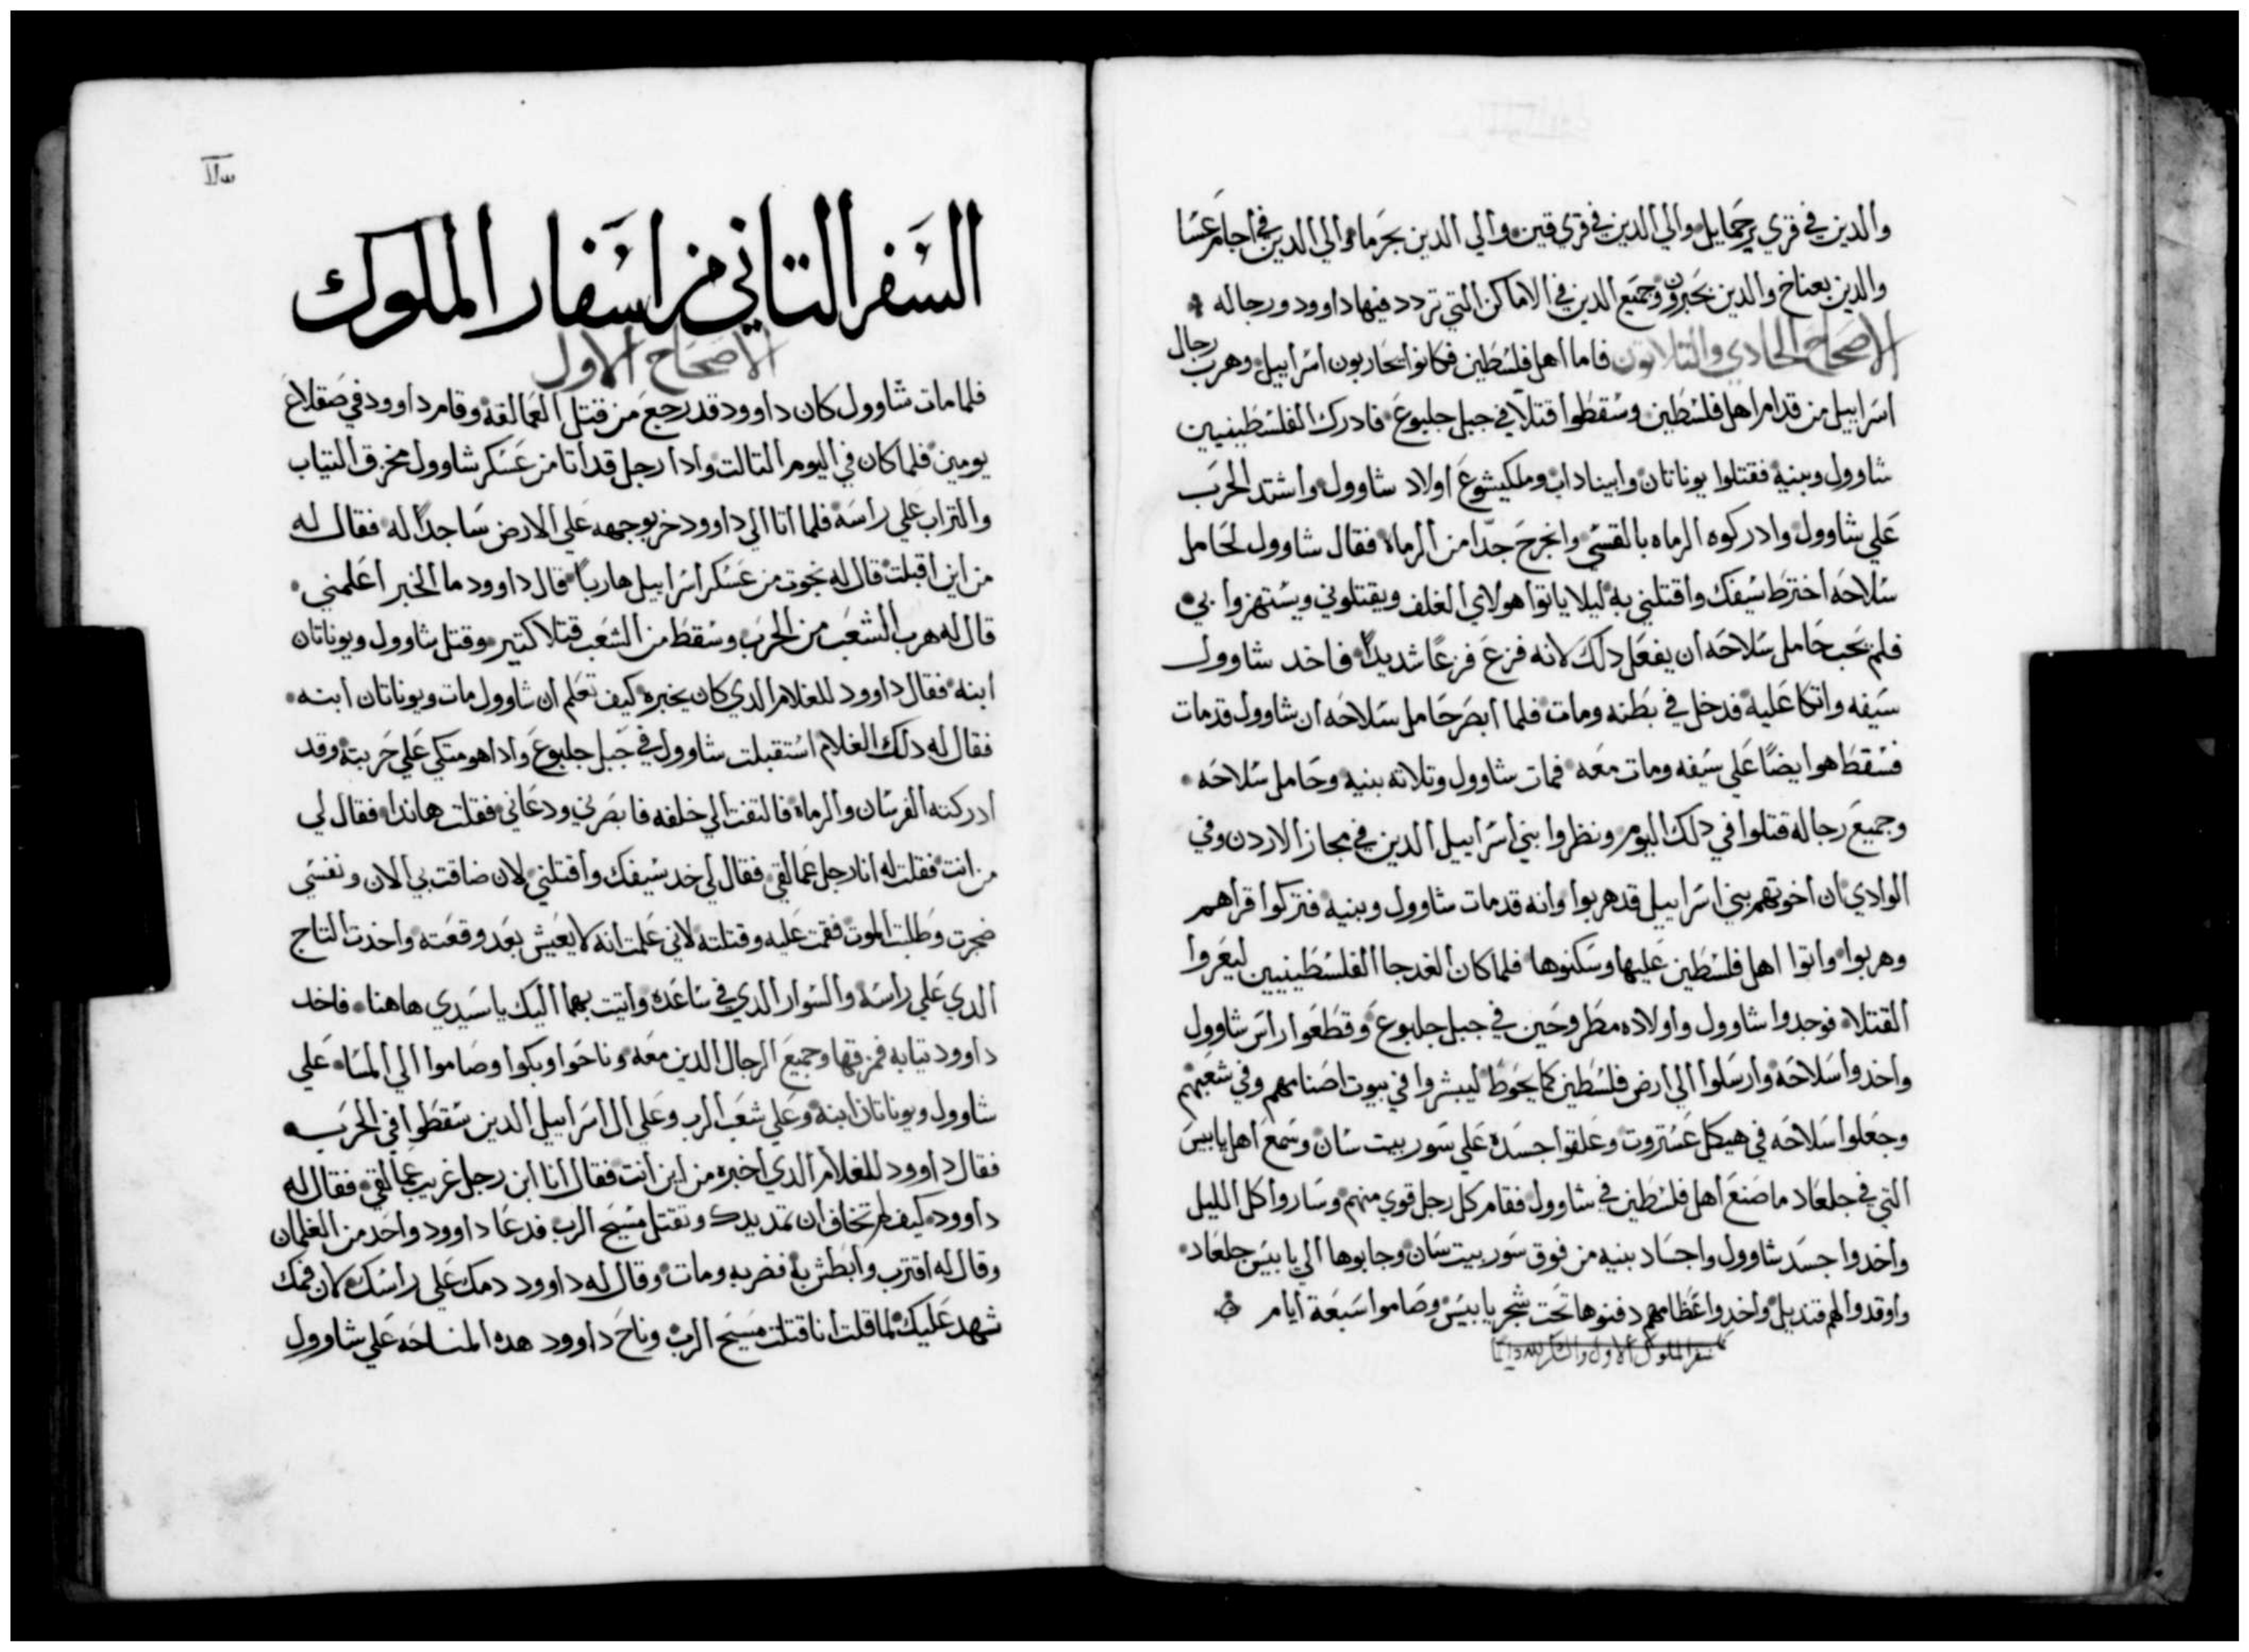 والدين في قري يرحمايل والي الدين في قري قين والي الدين بحرما والي الدين في اجام عسا
والدين بعناخ والدين بحبرون وجميع الدين في الاماكن التي تردد فيها داوود ورجاله
الاصحاح الحادي والتلاتون فاما اهل فلسطين فكانوا يحاربون اسراييل وهرب رجال
اسراييل من قدام اهل فلسطين وسقطوا قتلا في جبل جلبوع فادرك الفلسطينيين
شاوول وبنيه فقتلوا يوناتان وابيناداب وملكيشوع اولاد شاوول واشتد الحرب
علي شاوول وادركوه الرماه بالقسي وانجرح جدا من الرماه فقال شاوول لحامل
سلاحه اخترط سيفك واقتلني به ليلا ياتوا هولاي الغلف ويقتلوني ويستهزوا بي
فلم يحب حامل سلاحه ان يفعل دلك لانه فزع فزعا شديدا فاخد شاوول
سيفه واتكا عليه فدخل في بطنه ومات فلما ابصر حامل سلاحه ان شاوول قد مات
فسقط هو ايضا علي سيفه ومات معه فمات شاوول وتلاته بنيه وحامل سلاحه
وجميع رجاله قتلوا في دلك اليوم ونظروا بني اسراييل الدين في مجاز الاردن وفي
الوادي ان اخوتهم بني اسراييل قد هربوا وانه قد مات شاوول وبنيه فتركوا قراهم
وهربوا واتوا اهل فلسطين عليها وسكنوها فلما كان الغد جا الفلسطينيين ليعروا
القتلا فوجدوا شاوول واولاده مطروحين في جبل جلبوع وقطعوا راس شاوول
واخدوا سلاحه وارسلوا الي ارض فلسطين كما يحوط ليبشروا في بيوت اصنامهم وفي شعبهم
وجعلوا سلاحه في هيكل عستروت وعلقوا جسده علي سور بيت سان وسمع اهل يابيس
التي في جلعاد ما صنع اهل فلسطين في شاوول فقام كل رجل قوي منهم وساروا كل الليل
واخدوا جسد شاوول واجساد بنيه من فوق سور بيت سان وجابوها الي يابيس جلعاد
واوقدوا لهم قنديل واخدوا عظامهم دفنوها تحت شجر يابيس وصاموا سبعة ايام
سفر الملوك الاول والشكر لله دايما
السفر التاني من اسفار الملوك
الاصحاح الاول
فلما مات شاوول كان داوود قد رجع من قتل العمالقه وقام داوود في صقلاغ
يومين فلما كان في اليوم التالت وادا رجل قد اتا من عسكر شاوول مخرق التياب
والتراب علي راسه فلما اتا الي داوود خر بوجهه علي الارض ساجدا له فقال له
من اين اقبلت قال له نجوت من عسكر اسراييل هاربا قال داوود ما الخبر اعلمني
قال له هرب الشعب من الحرب وسقط من الشعب قتلا كتير وقتل شاوول ويوناتان
ابنه فقال داوود للغلام الدي كان يخبره كيف تعلم ان شاوول مات ويوناتان ابنه
فقال له دلك الغلام استقبلت شاوول في جبل جلبوع وادا هو متكي علي حربته وقد
ادركته الفرسان والرماه فالتفت الي خلفه فابصرني ودعاني فقلت هاندا فقال لي
من انت فقلت له انا رجل عمالقي فقال لي خد سيفك واقتلني لان ضاقت بي الان ونفسي
ضجرت وطلبت الموت فقمت عليه وقتلته لاني علمت انه لا يعيش بعد وقعته واخدت التاج
الدي علي راسه والسوار الدي في ساعده واتيت بهما اليك يا سيدي هاهنا فاخد
داوود تيابه فمزقها وجميع الرجال الدين معه وناحوا وبكوا وصاموا الي المسا علي
شاوول ويوناتان ابنه وعلي شعب الرب وعلي ال اسراييل الدين سقطوا في الحرب
فقال داوود للغلام الدي اخبره من اين انت فقال انا ابن رجل غريب عمالقي فقال له
داوود كيف لم تخاف ان تمد يدك وتقتل مسيح الرب فدعا داوود واحد من الغلمان
وقال له اقترب وابطش به فضربه ومات وقال له داوود دمك علي راسك لان فمك
شهد عليك لما قلت انا قتلت مسيح الرب وناح داوود هده المناحه علي شاوول